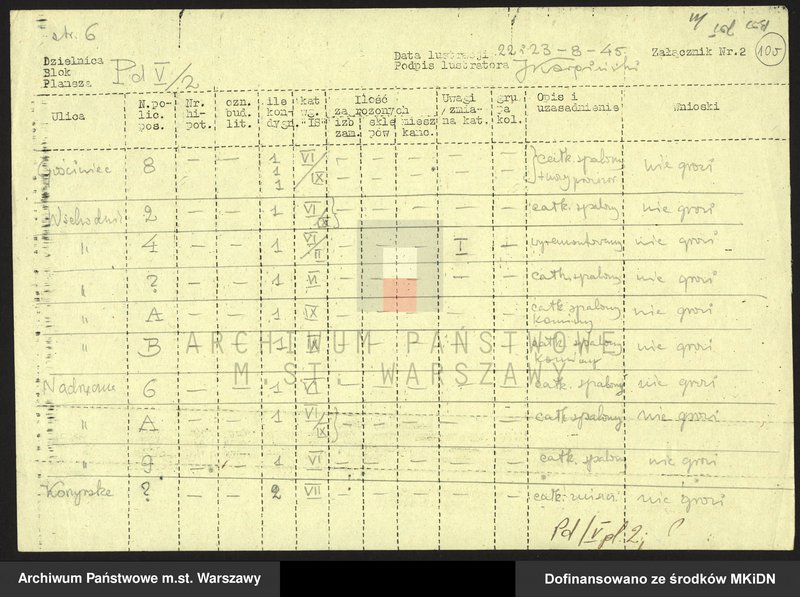 str. 6
Dzielnica
Blok
Plansza
Pd V/2
Data lustracji 22 i 23-8-45
Podpis lustratora JKarpiński
Załącznik Nr.2 105
Ulica
N.po-
lic.
pos.
Nr.
hi-
pot.
ozn.
bud.
lit.
ile
kon-
dygn.
kat
wg.
"IS"
Ilość
zagrozonych
izb
zam.
skle
pów
miesz
kanc.
Uwagi
/zmia-
na kat.
gru
pa
kol.
Opis i
uzasadnienie
Wnioski
Gościniec 8 — — 1 VI — — — — — całk. spalony nie grozi
1 — — — — —
1 IX
Wschodnia 2 — — 1 VI IX — — — — — całk. spalony nie grozi
" 4 — — 1 VI/II — — — I — wyremontowany nie grozi
" ? — — 1 VI — — — — — całk. spalony nie grozi
" A — — 1 IX — — — — — całk. spalony nie grozi
kominy
" B — — 1 IX — — — — — całk. spalony nie grozi
kominy
Nadrzeczna 6 — — 1 VI — — — — — całk. spalony nie grozi
" A — — 1 VI/IX — — — — — całk. spalony nie grozi
" 9 — — 1 VI — — — — — całk. spalony nie grozi
? — — 2 VII — — — — — nie grozi
Pd/V pl. 2, ?
ARCHIWUM PAŃSTWOWE
M.ST. WARSZAWY
Archiwum Państwowe m.st. Warszawy
Dofinansowano ze środków MKiDN